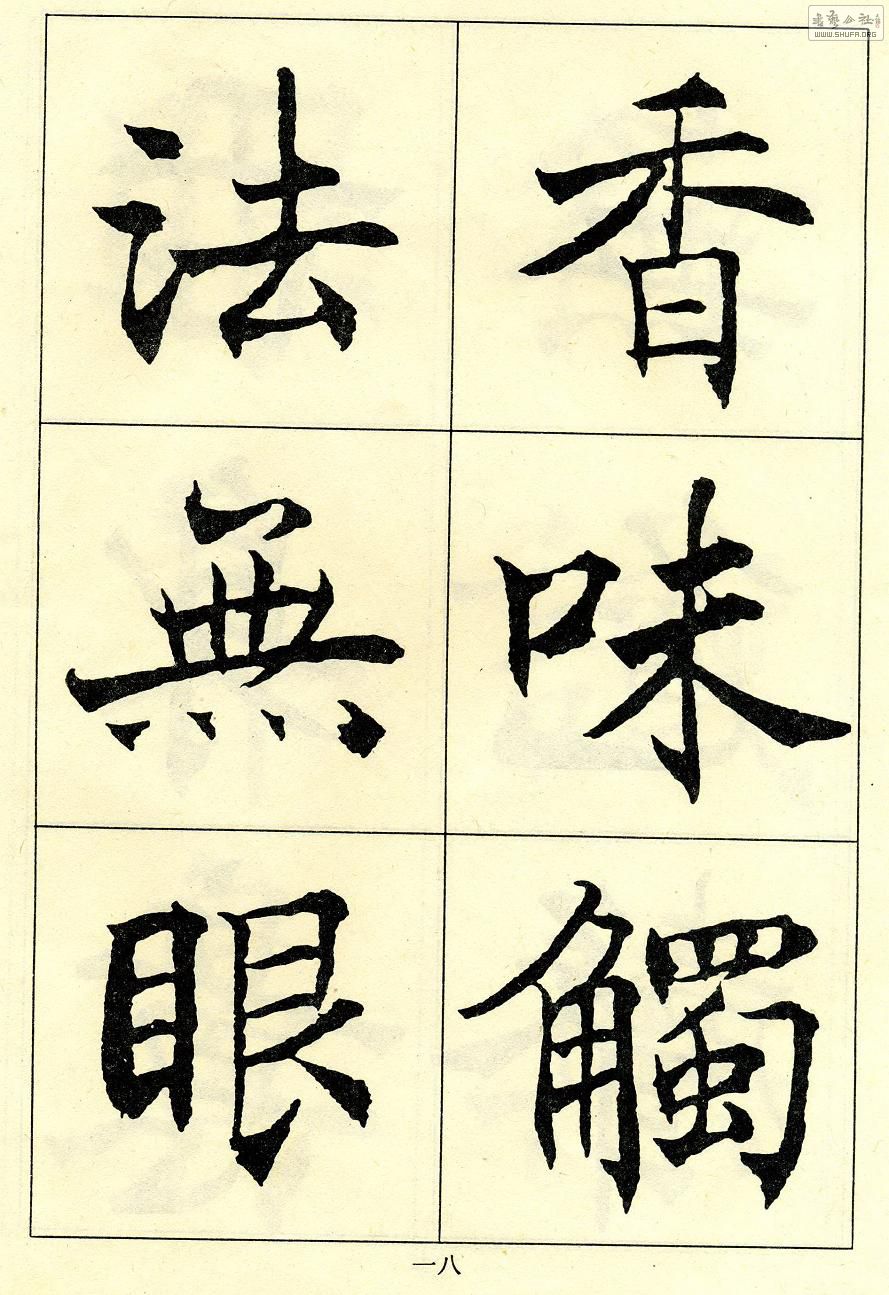 香味觸
法無眼
一八
WWW.SHUFA.ORG